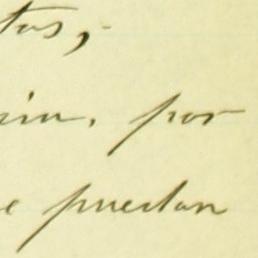 tos,
por
e puedan